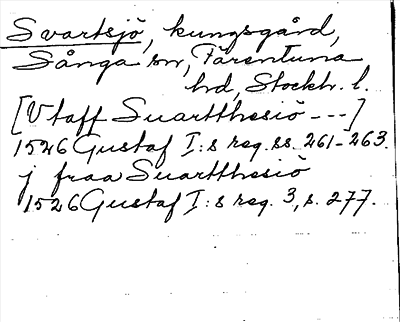 Svartsjö, kungsgård,
Sånga sn, Färentuna
hd, Stockh. l.
[Vtaff Suartthesiö ---]
1526 Gustaf I:s reg. ss. 261-263.
j fraa Suartthesiö
1526 Gustaf I:s reg. 3, s. 277.